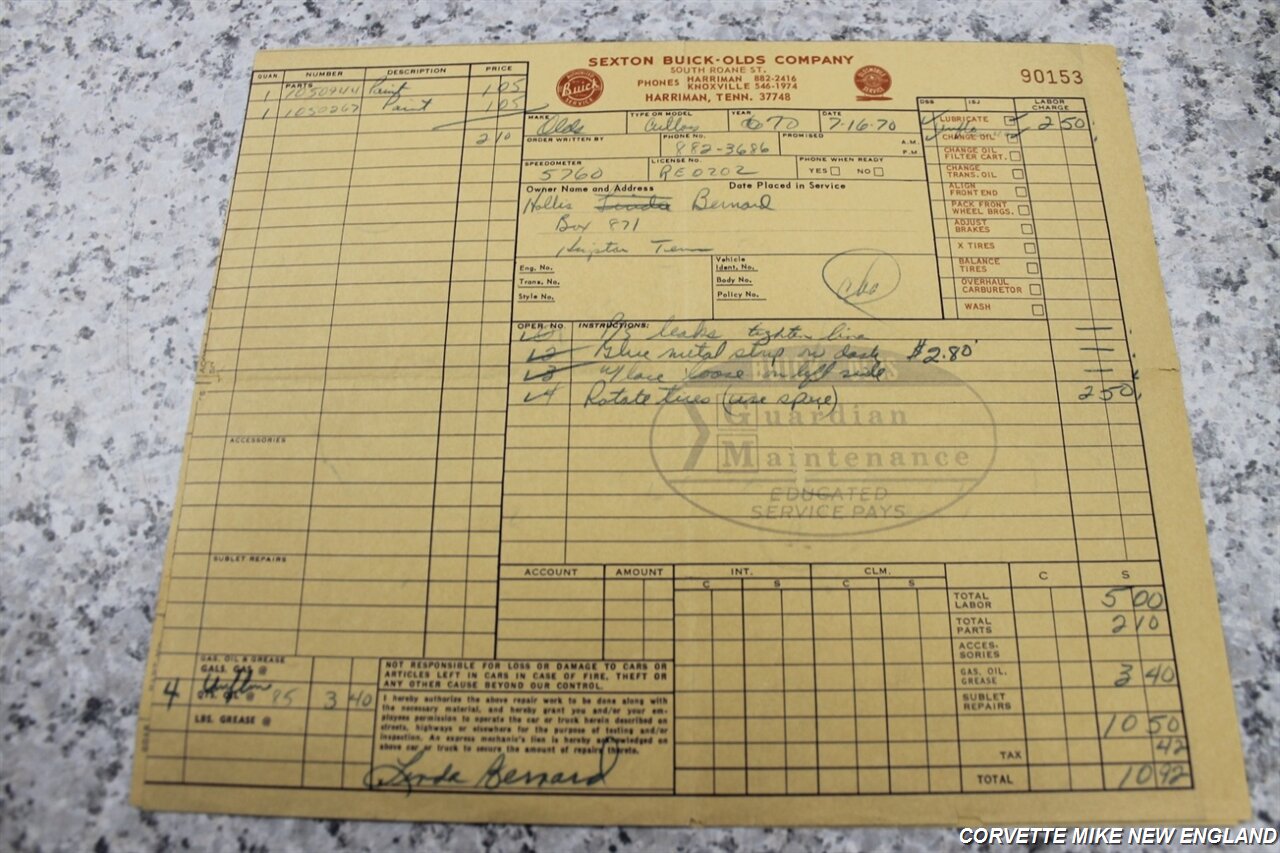 SEXTON BUICK-OLDS COMPANY
SOUTH ROANE ST.
PHONES HARRIMAN 882-2416
KNOXVILLE 546-1974
HARRIMAN, TENN. 37748
AUTHORIZED Buick SERVICE
OLDSMOBILE SERVICE
90153
QUAN. NUMBER DESCRIPTION PRICE
PARTS
1 1050944 Paint 1 05
1 1050267 Paint 1 05
2 10
ACCESSORIES
SUBLET REPAIRS
MAKE TYPE OR MODEL YEAR DATE
Olds Cutlass 70 7-16-70
ORDER WRITTEN BY PHONE NO. PROMISED A.M.
882-3686 P.M.
SPEEDOMETER LICENSE NO. PHONE WHEN READY
5760 RE0202 YES NO
Owner Name and Address Date Placed in Service
Hollis Linda Bernard
Box 871
Tenn
Eng. No. Vehicle Ident. No.
Trans. No. Body No.
Style No. Policy No.
DSS ISJ LABOR CHARGE
LUBRICATE 2 50
CHANGE OIL
CHANGE OIL FILTER CART.
CHANGE TRANS. OIL
ALIGN FRONT END
PACK FRONT WHEEL BRGS.
ADJUST BRAKES
X TIRES
BALANCE TIRES
OVERHAUL CARBURETOR
WASH
OPER. NO. INSTRUCTIONS:
leaks tighten line
2 Glue metal strip on dash $2.80
3 loose on left side
4 Rotate tires (use spare) 2 50
Guardian
Maintenance
EDUCATED
SERVICE PAYS
ACCOUNT AMOUNT INT. CLM. C S
C S C S
TOTAL LABOR 5 00
TOTAL PARTS 2 10
ACCESSORIES
GAS, OIL, GREASE 3 40
SUBLET REPAIRS
10 50
TAX 42
TOTAL 10 92
GAS, OIL & GREASE
GALS. GAS @
4 85 3 40
LBS. GREASE @
NOT RESPONSIBLE FOR LOSS OR DAMAGE TO CARS OR
ARTICLES LEFT IN CARS IN CASE OF FIRE, THEFT OR
ANY OTHER CAUSE BEYOND OUR CONTROL.
I hereby authorize the above repair work to be done along with
the necessary material, and hereby grant you and/or your em-
ployees permission to operate the car or truck herein described on
streets, highways or elsewhere for the purpose of testing and/or
inspection. An express mechanic's lien is hereby acknowledged on
above car or truck to secure the amount of repairs thereto.
Linda Bernard
CORVETTE MIKE NEW ENGLAND